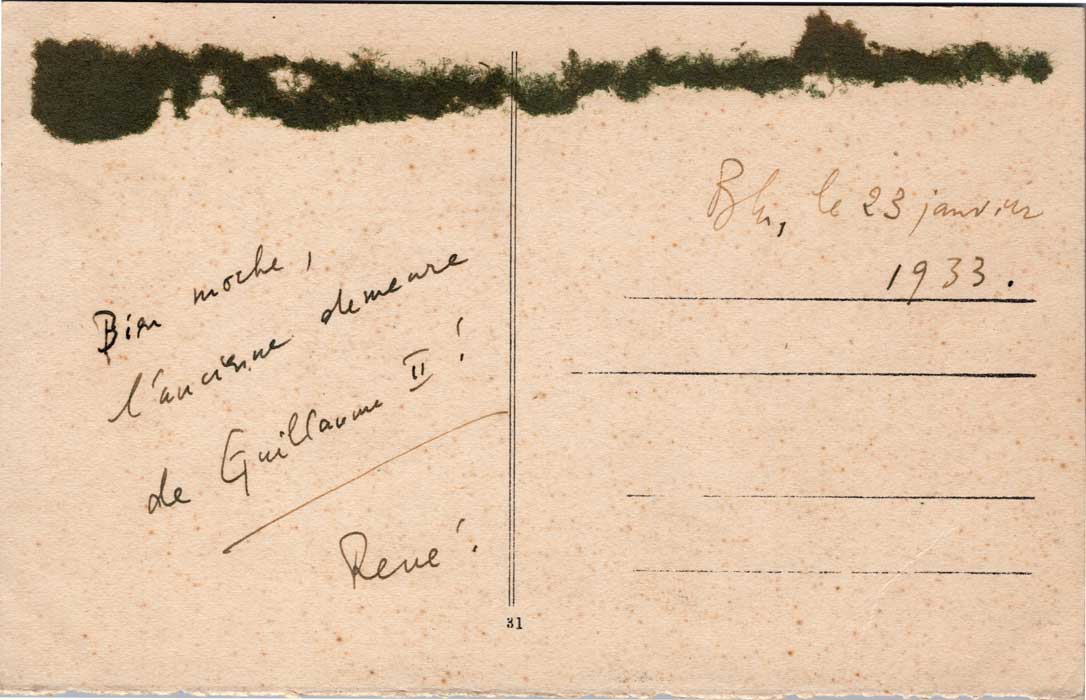 Bien moche,
l'ancienne demeure
de Guillaume II !
René.
le 23 janvier
1933.
31